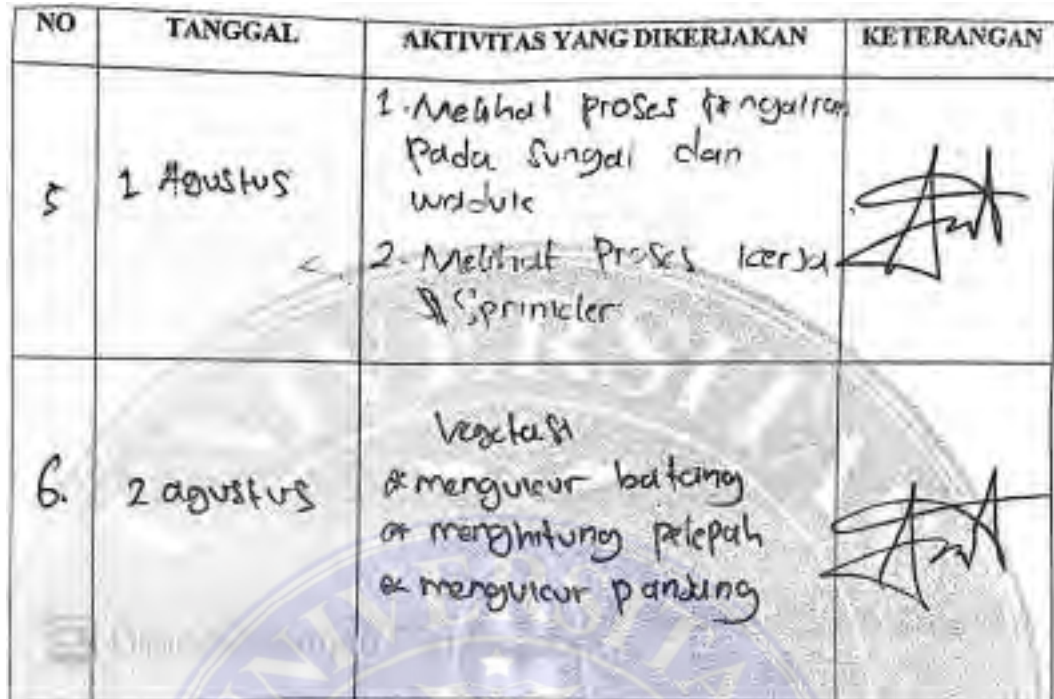 NO TANGGAL AKTIVITAS YANG DIKERJAKAN KETERANGAN
5 1 Agustus
1. Melihat proses pengairan
pada sungai dan
waduk
2. Melihat proses kerja
Sprinkler
6. 2 agustus
Vegetasi
mengukur batang
menghitung pelepah
mengukur panjang
UNIVERSITA